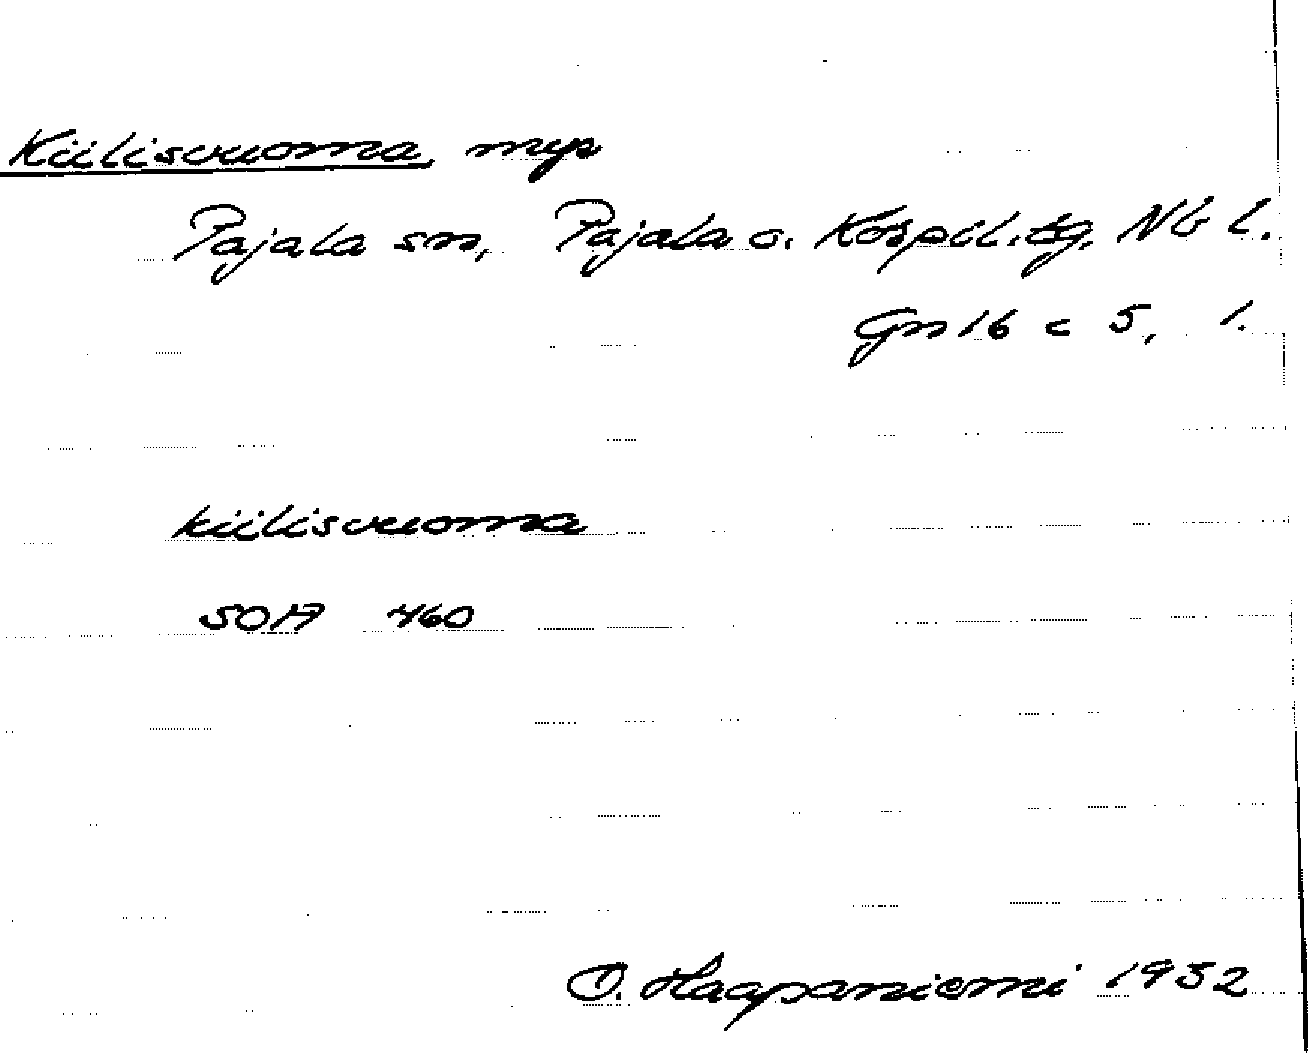 Kiilisvuoma, myr
Pajala sn, Pajala o. Korpil. tg. Nb l.
Gn 16 c 5, 1.
kiilisvuoma
SOA 460
O. Haapaniemi 1932